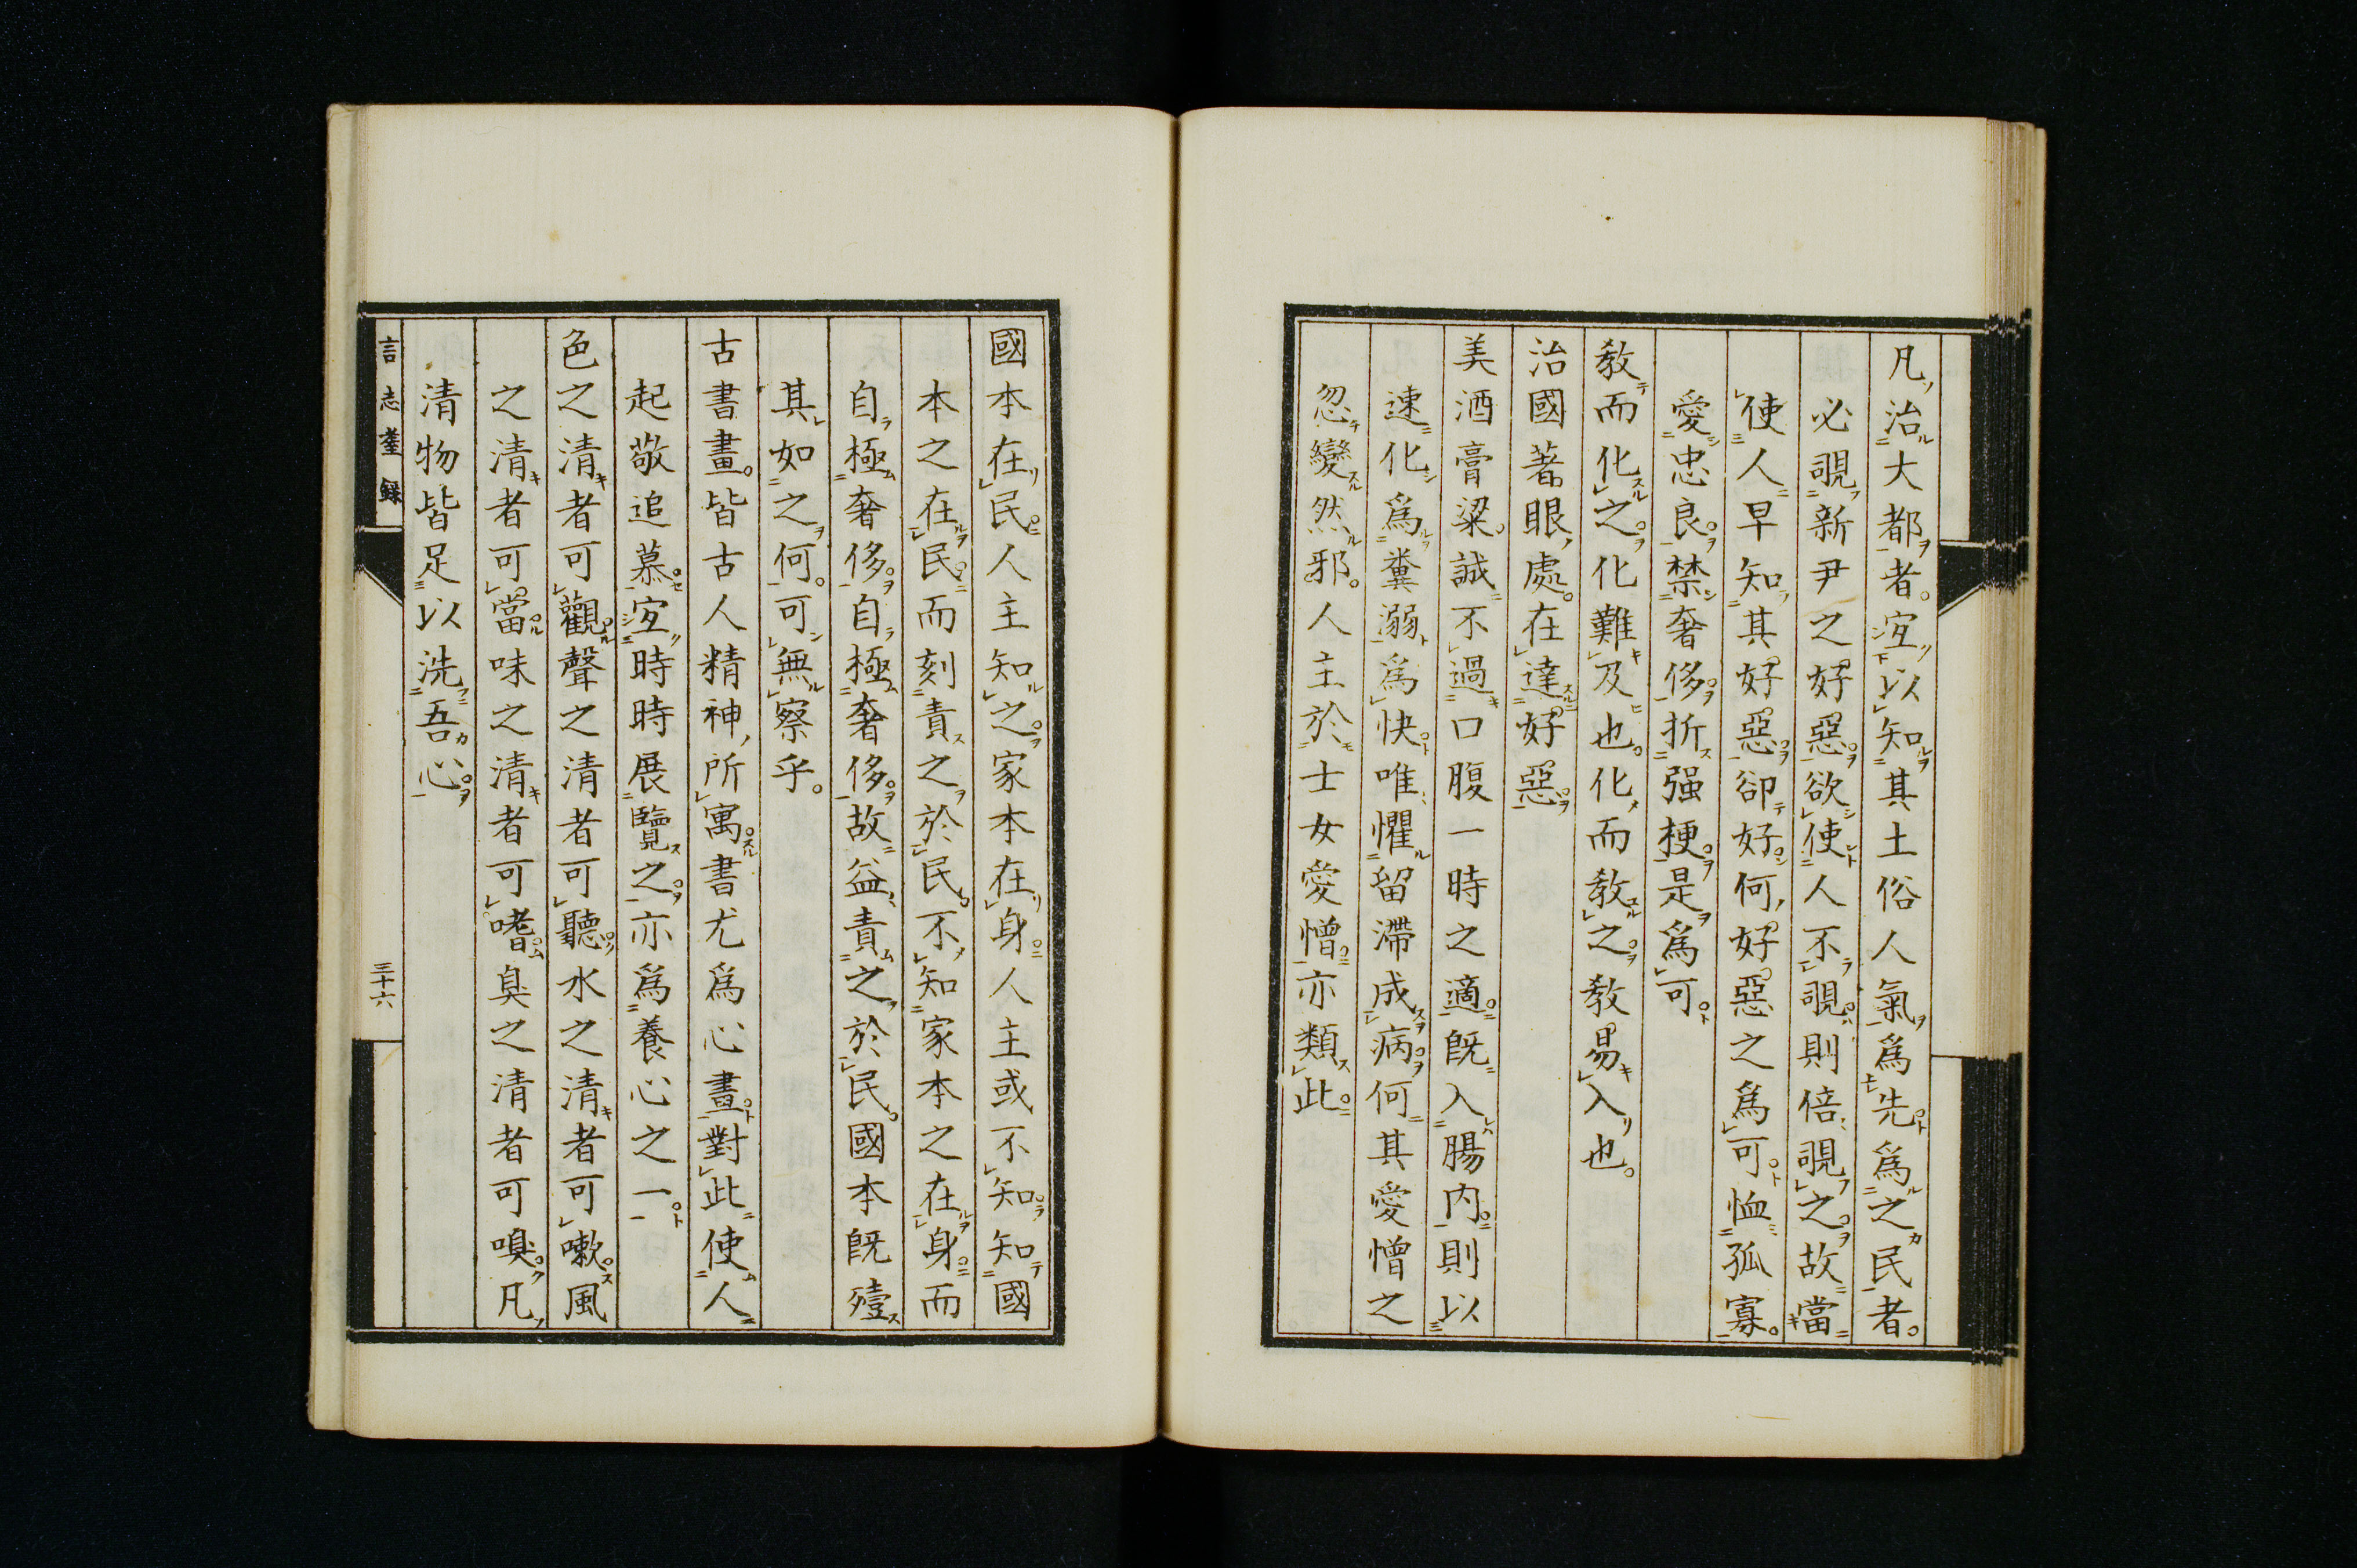 凡治大都者。宜以知其土俗人氣爲先爲之民者。
必覘新尹之好惡欲使人不覘則倍覘之故當
使人早知其好惡卻好何好惡之爲可恤孤寡。
愛忠良。禁奢侈折强梗是爲可
教而化之。化難及也。化而教之教易入也。
治國著眼處。在達好惡
美酒膏粱。誠不過口腹一時之適。既入腸内則以
速化爲糞溺爲快唯懼留滯成病何其愛憎之
忽變然邪。人主於士女愛憎亦類此
國本在民人主知之家本在身人主或不知知國
本之在民而刻責之於民。不知家本之在身而
自極奢侈。自極奢侈故益責之於民。國本既殪
其如之何。可無察乎。
古書畫。皆古人精神所寓書尤爲心畫對此使人
起敬追慕宜時時展覽之。亦爲養心之一
色之清者可觀聲之清者可聽水之清者可嗽風
之清者可當味之清者可嗜臭之清者可嗅凡
清物皆足以洗吾心
言志耋録
三十六